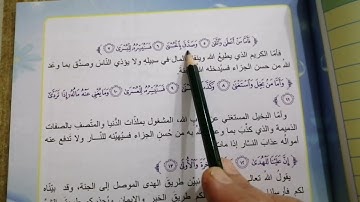 فَأَمَّا مَنْ أَعْطَىٰ وَاتَّقَىٰ ٥ وَصَدَّقَ بِالْحُسْنَىٰ ٦ فَسَنُيَسِّرُهُ لِلْيُسْرَىٰ ٧
فأما الكريم الذي يطيع الله وينفق المال في سبيله ولا يؤذي الناس وصدّق بما وعد
الله من حسن الجزاء فسيُدخله الله
وَأَمَّا مَنْ بَخِلَ وَاسْتَغْنَىٰ ٨ وَكَذَّبَ فَسَنُيَسِّرُهُ لِلْعُسْرَىٰ ١٠ وَمَا يُغْنِي عَنْهُ مَالُهُ إِذَا تَرَدَّىٰ
١١
وأما البخيل المستغني عن الله، المشغول بملذّات الدُّنيا والمتصف بالصفات
الذميمة والذي كذّب بما وعد به من حُسن الجزاء فسيُهيّئه للنَّار ولا تدفع عنه
أمواله عذابَ النَّار إذا مات
إِنَّ عَلَيْنَا لَلْهُدَىٰ ١٢ وَالْأُولَىٰ ١٣
يقول الله تعالى طريق الهدى الموصل إلى الجنة، وقد بيّناه
لكم فأرسلنا طريق الخير والإيمان